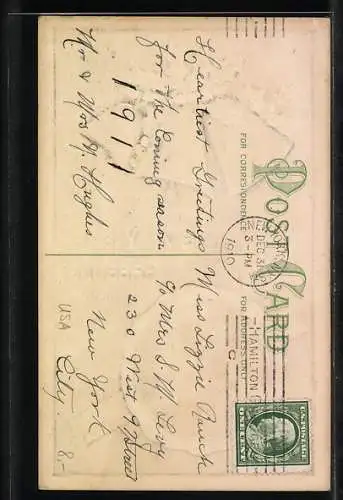 POST CARD
FOR CORRESPONDENCE
FOR ADDRESS ONLY
DEC 31
3-PM
1910
HAMILTON
U.S. POSTAGE
ONE CENT
Heartiest Greetings
for the coming season
1911
Mr & Mrs M. Hughes
Miss Lizzie
c/o Mrs S. W. Levy
230 West Street
New York
City.
USA
8-